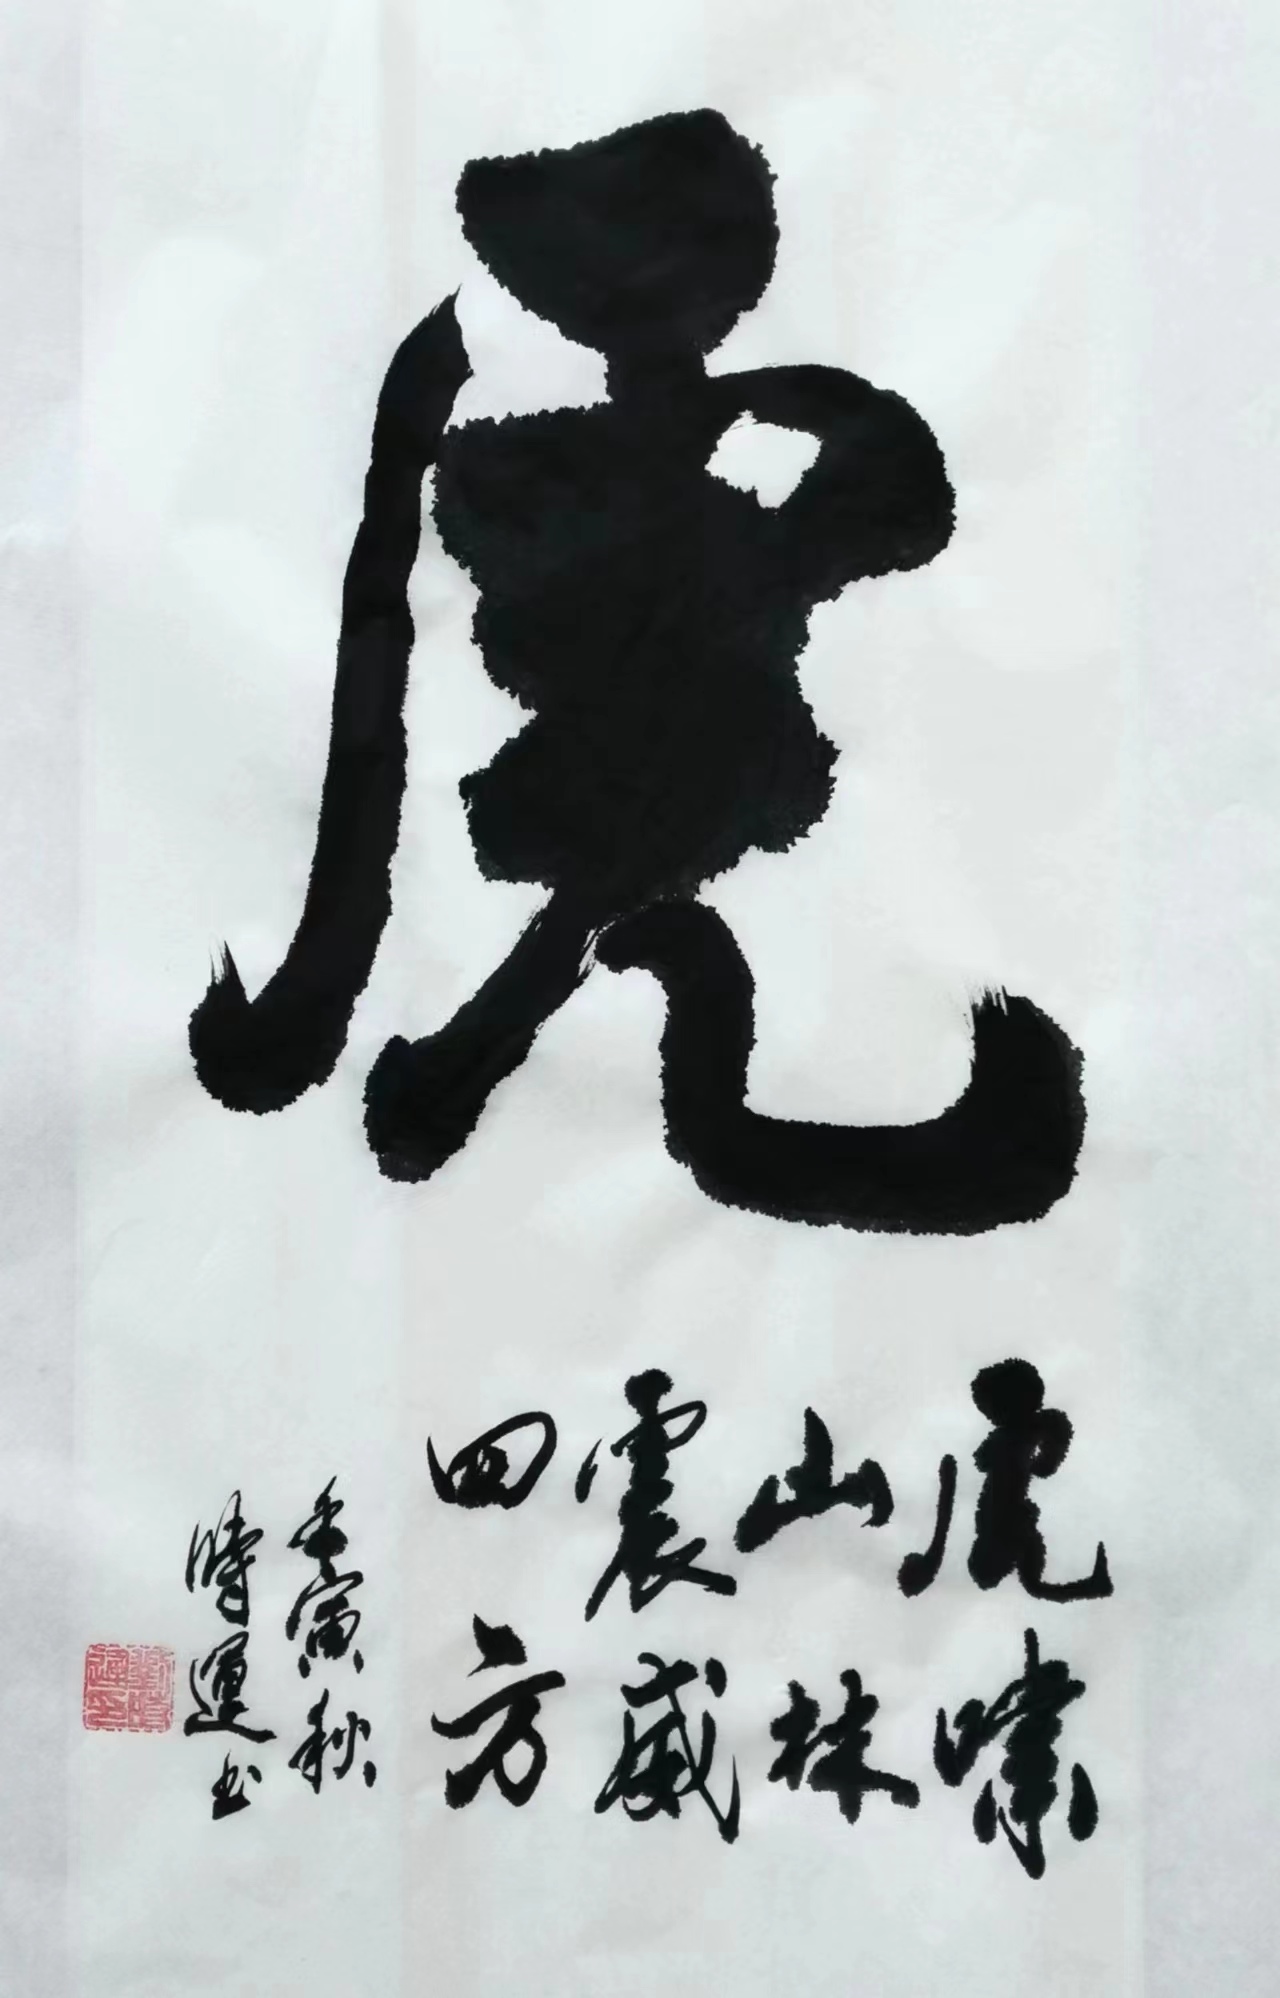 虎
虎啸
山林
震威
四方
壬寅秋
時運书